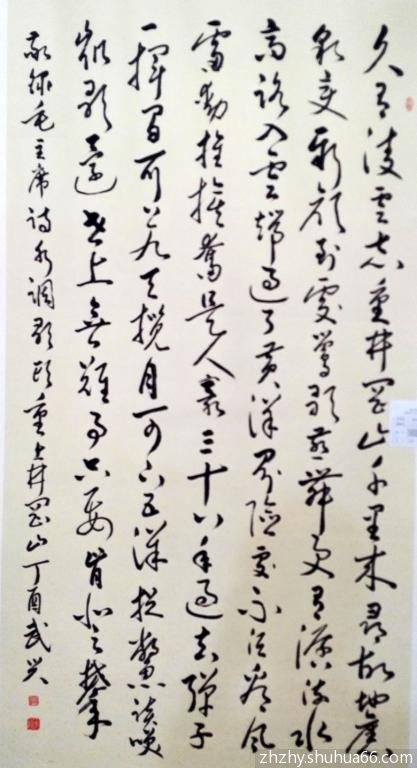 久有凌云志重井冈山千里来寻故地旧
貌变新颜到处莺歌燕舞更有潺流水
高路入云端过了黄洋界险处不须看风
雷动旌旗奋是人寰三十八年过去弹指
一挥间可上九天揽月可下五洋捉鳖谈笑
凯歌还世上无难事只要肯登攀
敬录毛主席诗水调歌头重上井冈山丁酉武兴
zhzhy.shuhua66.com